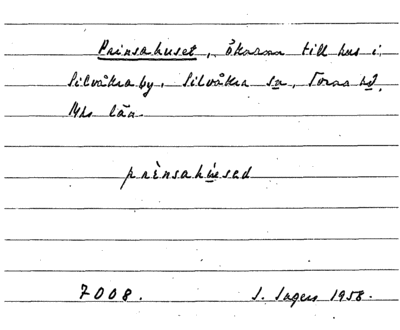 Prinsahuset, åkarna till hus i
Silvåkra by. Silvåkra sn, Torna hd,
Mhs län.
prìnsahúsed
7008. S. Sagers 1958.